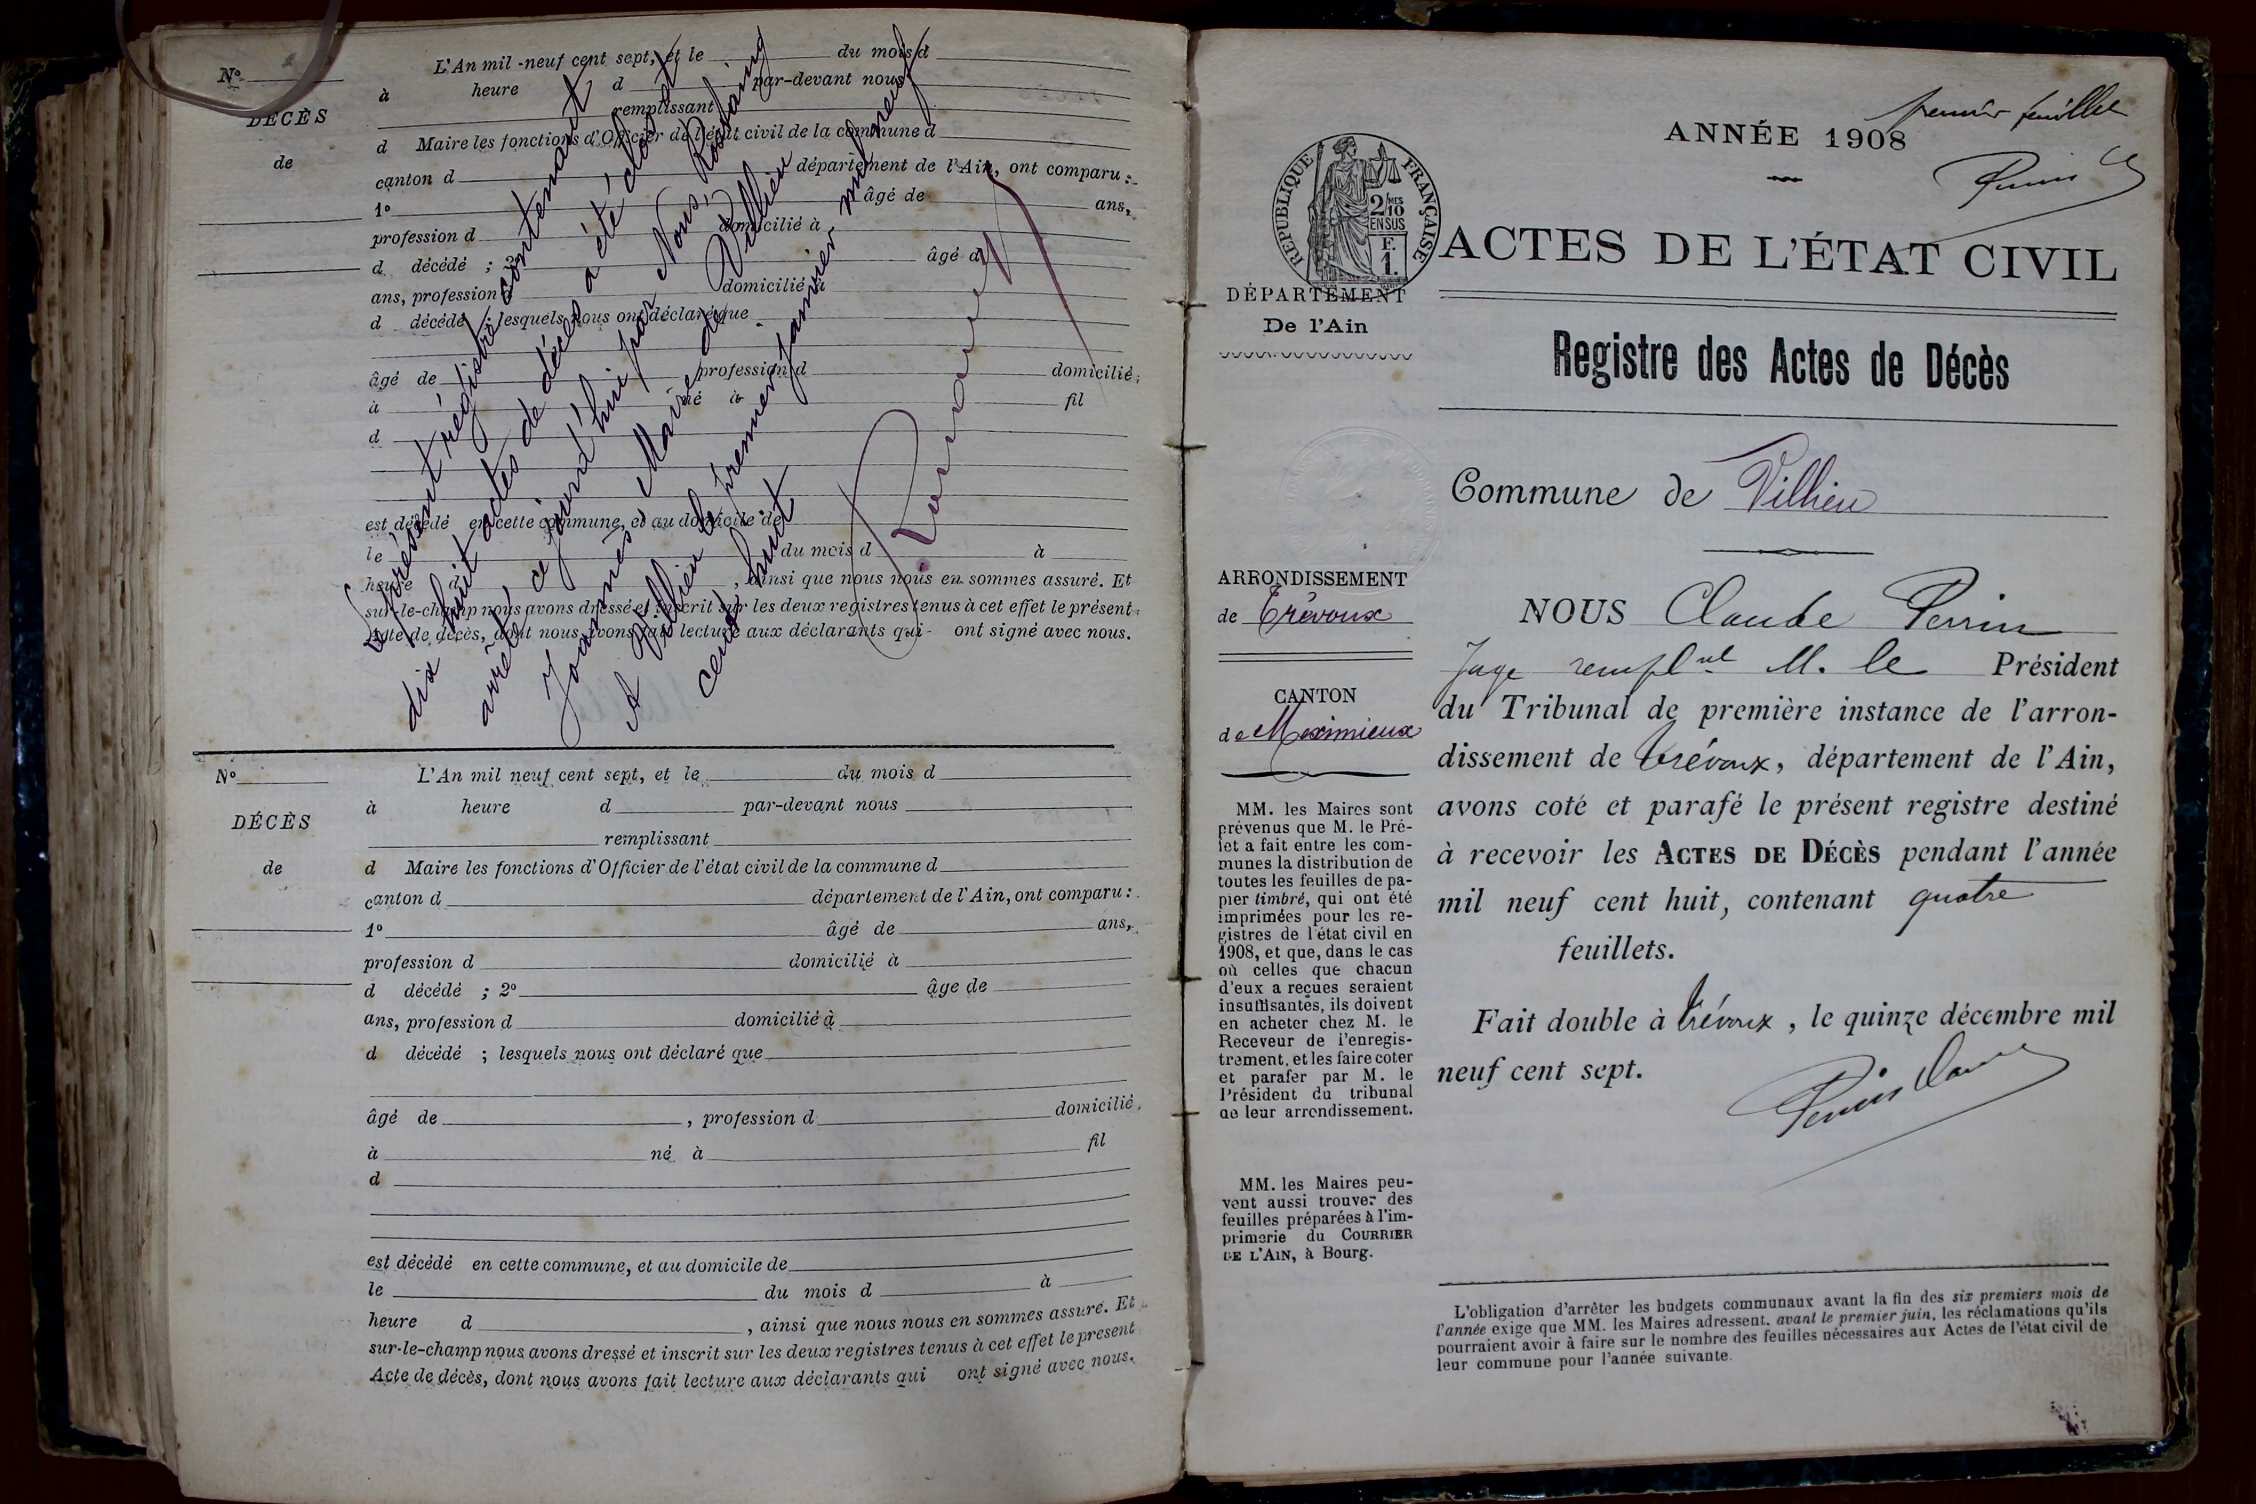 N°
DÉCÈS
de
L'An mil-neuf cent sept, et le du mois d
à heure d par-devant nous
remplissant
d Maire les fonctions d'Officier de l'état civil de la commune d
canton d département de l'Ain, ont comparu :
1° âgé de ans,
profession d domicilié à
d décédé ; 2° âgé d
ans, profession d domicilié à
d décédé ; lesquels nous ont déclaré que
âgé de profession d domicilié,
à né à fil
d
est décédé en cette commune, et au domicile de
le du mois d à
heure d , ainsi que nous nous en sommes assuré. Et
sur-le-champ nous avons dressé et inscrit sur les deux registres tenus à cet effet le présent
Acte de décès, dont nous avons fait lecture aux déclarants qui ont signé avec nous.
Le présent régistre contenant
dix huit actes de décès a été clos et
arrêté ce jourd'hui par Nous, Rostaing
Joannès, Maire de Villieu
A Villieu le premier janvier mil neuf
cent huit
N°
DÉCÈS
de
L'An mil neuf cent sept, et le du mois d
à heure d par-devant nous
remplissant
d Maire les fonctions d'Officier de l'état civil de la commune d
canton d département de l'Ain, ont comparu :
1° âgé de ans,
profession d domicilié à
d décédé ; 2° âge de
ans, profession d domicilié à
d décédé ; lesquels nous ont déclaré que
âgé de , profession d domicilié,
à né à fil
d
est décédé en cette commune, et au domicile de
le du mois d à
heure d , ainsi que nous nous en sommes assuré. Et
sur-le-champ nous avons dressé et inscrit sur les deux registres tenus à cet effet le présent
Acte de décès, dont nous avons fait lecture aux déclarants qui ont signé avec nous.
premier feuillet
ANNÉE 1908
RÉPUBLIQUE FRANÇAISE
2/10 MES
EN SUS
F.
1.
ACTES DE L'ÉTAT CIVIL
DÉPARTEMENT
De l'Ain
Registre des Actes de Décès
Commune de Villieu
ARRONDISSEMENT
de Trévoux
CANTON
de Meximieux
MM. les Maires sont
prévenus que M. le Pré-
fet a fait entre les com-
munes la distribution de
toutes les feuilles de pa-
pier timbré, qui ont été
imprimées pour les re-
gistres de l'état civil en
1908, et que, dans le cas
où celles que chacun
d'eux a reçues seraient
insuffisantes, ils doivent
en acheter chez M. le
Receveur de l'enregis-
trement, et les faire coter
et parafer par M. le
Président du tribunal
de leur arrondissement.
MM. les Maires peu-
vent aussi trouver des
feuilles préparées à l'im-
primerie du COURRIER
DE L'AIN, à Bourg.
NOUS Claude Perrin
Juge rempl<sup>nt</sup> M. le Président
du Tribunal de première instance de l'arron-
dissement de Trévoux, département de l'Ain,
avons coté et parafé le présent registre destiné
à recevoir les ACTES DE DÉCÈS pendant l'année
mil neuf cent huit, contenant quatre
feuillets.
Fait double à Trévoux, le quinze décembre mil
neuf cent sept.
L'obligation d'arrêter les budgets communaux avant la fin des six premiers mois de
l'année exige que MM. les Maires adressent, avant le premier juin, les réclamations qu'ils
pourraient avoir à faire sur le nombre des feuilles nécessaires aux Actes de l'état civil de
leur commune pour l'année suivante.